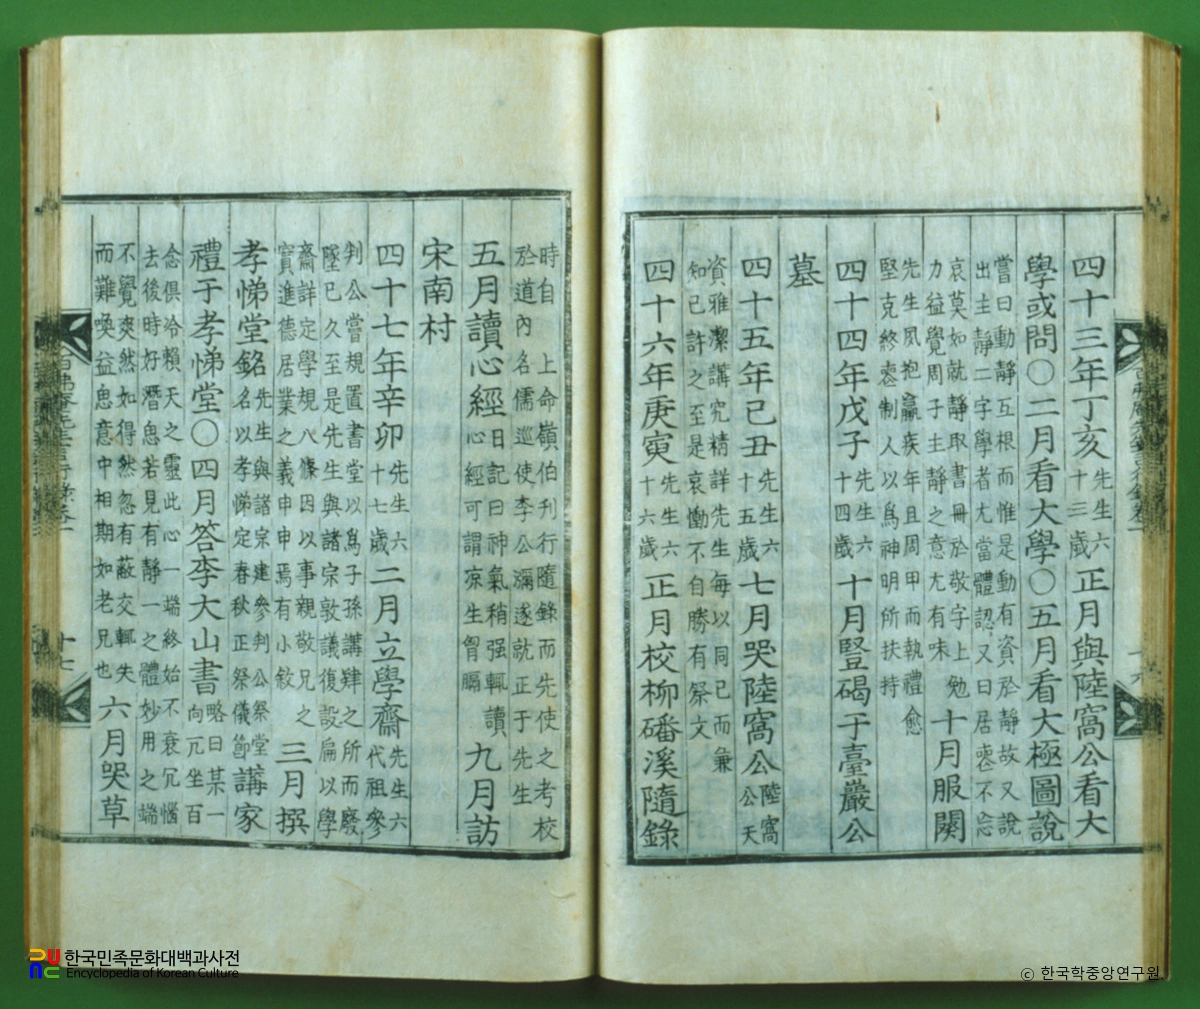 四十三年丁亥先生六十三歲正月與陸窩公看大
學或問○二月看大學○五月看大極圖說
嘗曰動靜互根而惟是動有資於靜故又說
出主靜二字學者尤當體認又曰居喪不忘
哀莫如就靜取書冊於敬字上勉
力益覺周子主靜之意尤有味十月服闋
先生夙抱羸疾年且周甲而執禮愈
堅克終喪制人以爲神明所扶持
四十四年戊子先生六十四歲十月竪碣于臺巖公
墓
四十五年己丑先生六十五歲七月哭陸窩公陸窩公天
資雅潔講究精詳先生每以同己而兼
知己許之至是哀慟不自勝有祭文
四十六年庚寅先生六十六歲正月校柳磻溪隨錄
時自 上命嶺伯刋行隨錄而先使之考校
於道內名儒巡使李公瀰遂就正于先生
五月讀心經日記曰神氣稍强輒讀心經可謂凉生胷膈九月訪
宋南村
四十七年辛卯先生六十七歲二月立學齋先生六代祖參
判公嘗規置書堂以爲子孫講肄之所而廢
墜已久至是先生與諸宗敦議復設扁以學
齋詳定學規八條因以事親敬兄之
實進德居業之義申申焉有小敘三月撰
孝悌堂銘先生與諸宗建參判公祭堂名以孝悌定春秋正祭儀節講家
禮于孝悌堂○四月答李大山書略曰某一向兀坐百
念俱冷賴天之靈此心一端終始不衰冗惱
去後時好潛息若見有靜一之體妙用之端
不覺爽然如得然忽有蔽交輒失
而難喚益思意中相期如老兄也六月哭草
十七
한국민족문화대백과사전
Encyclopedia of Korean Culture
© 한국학중앙연구원